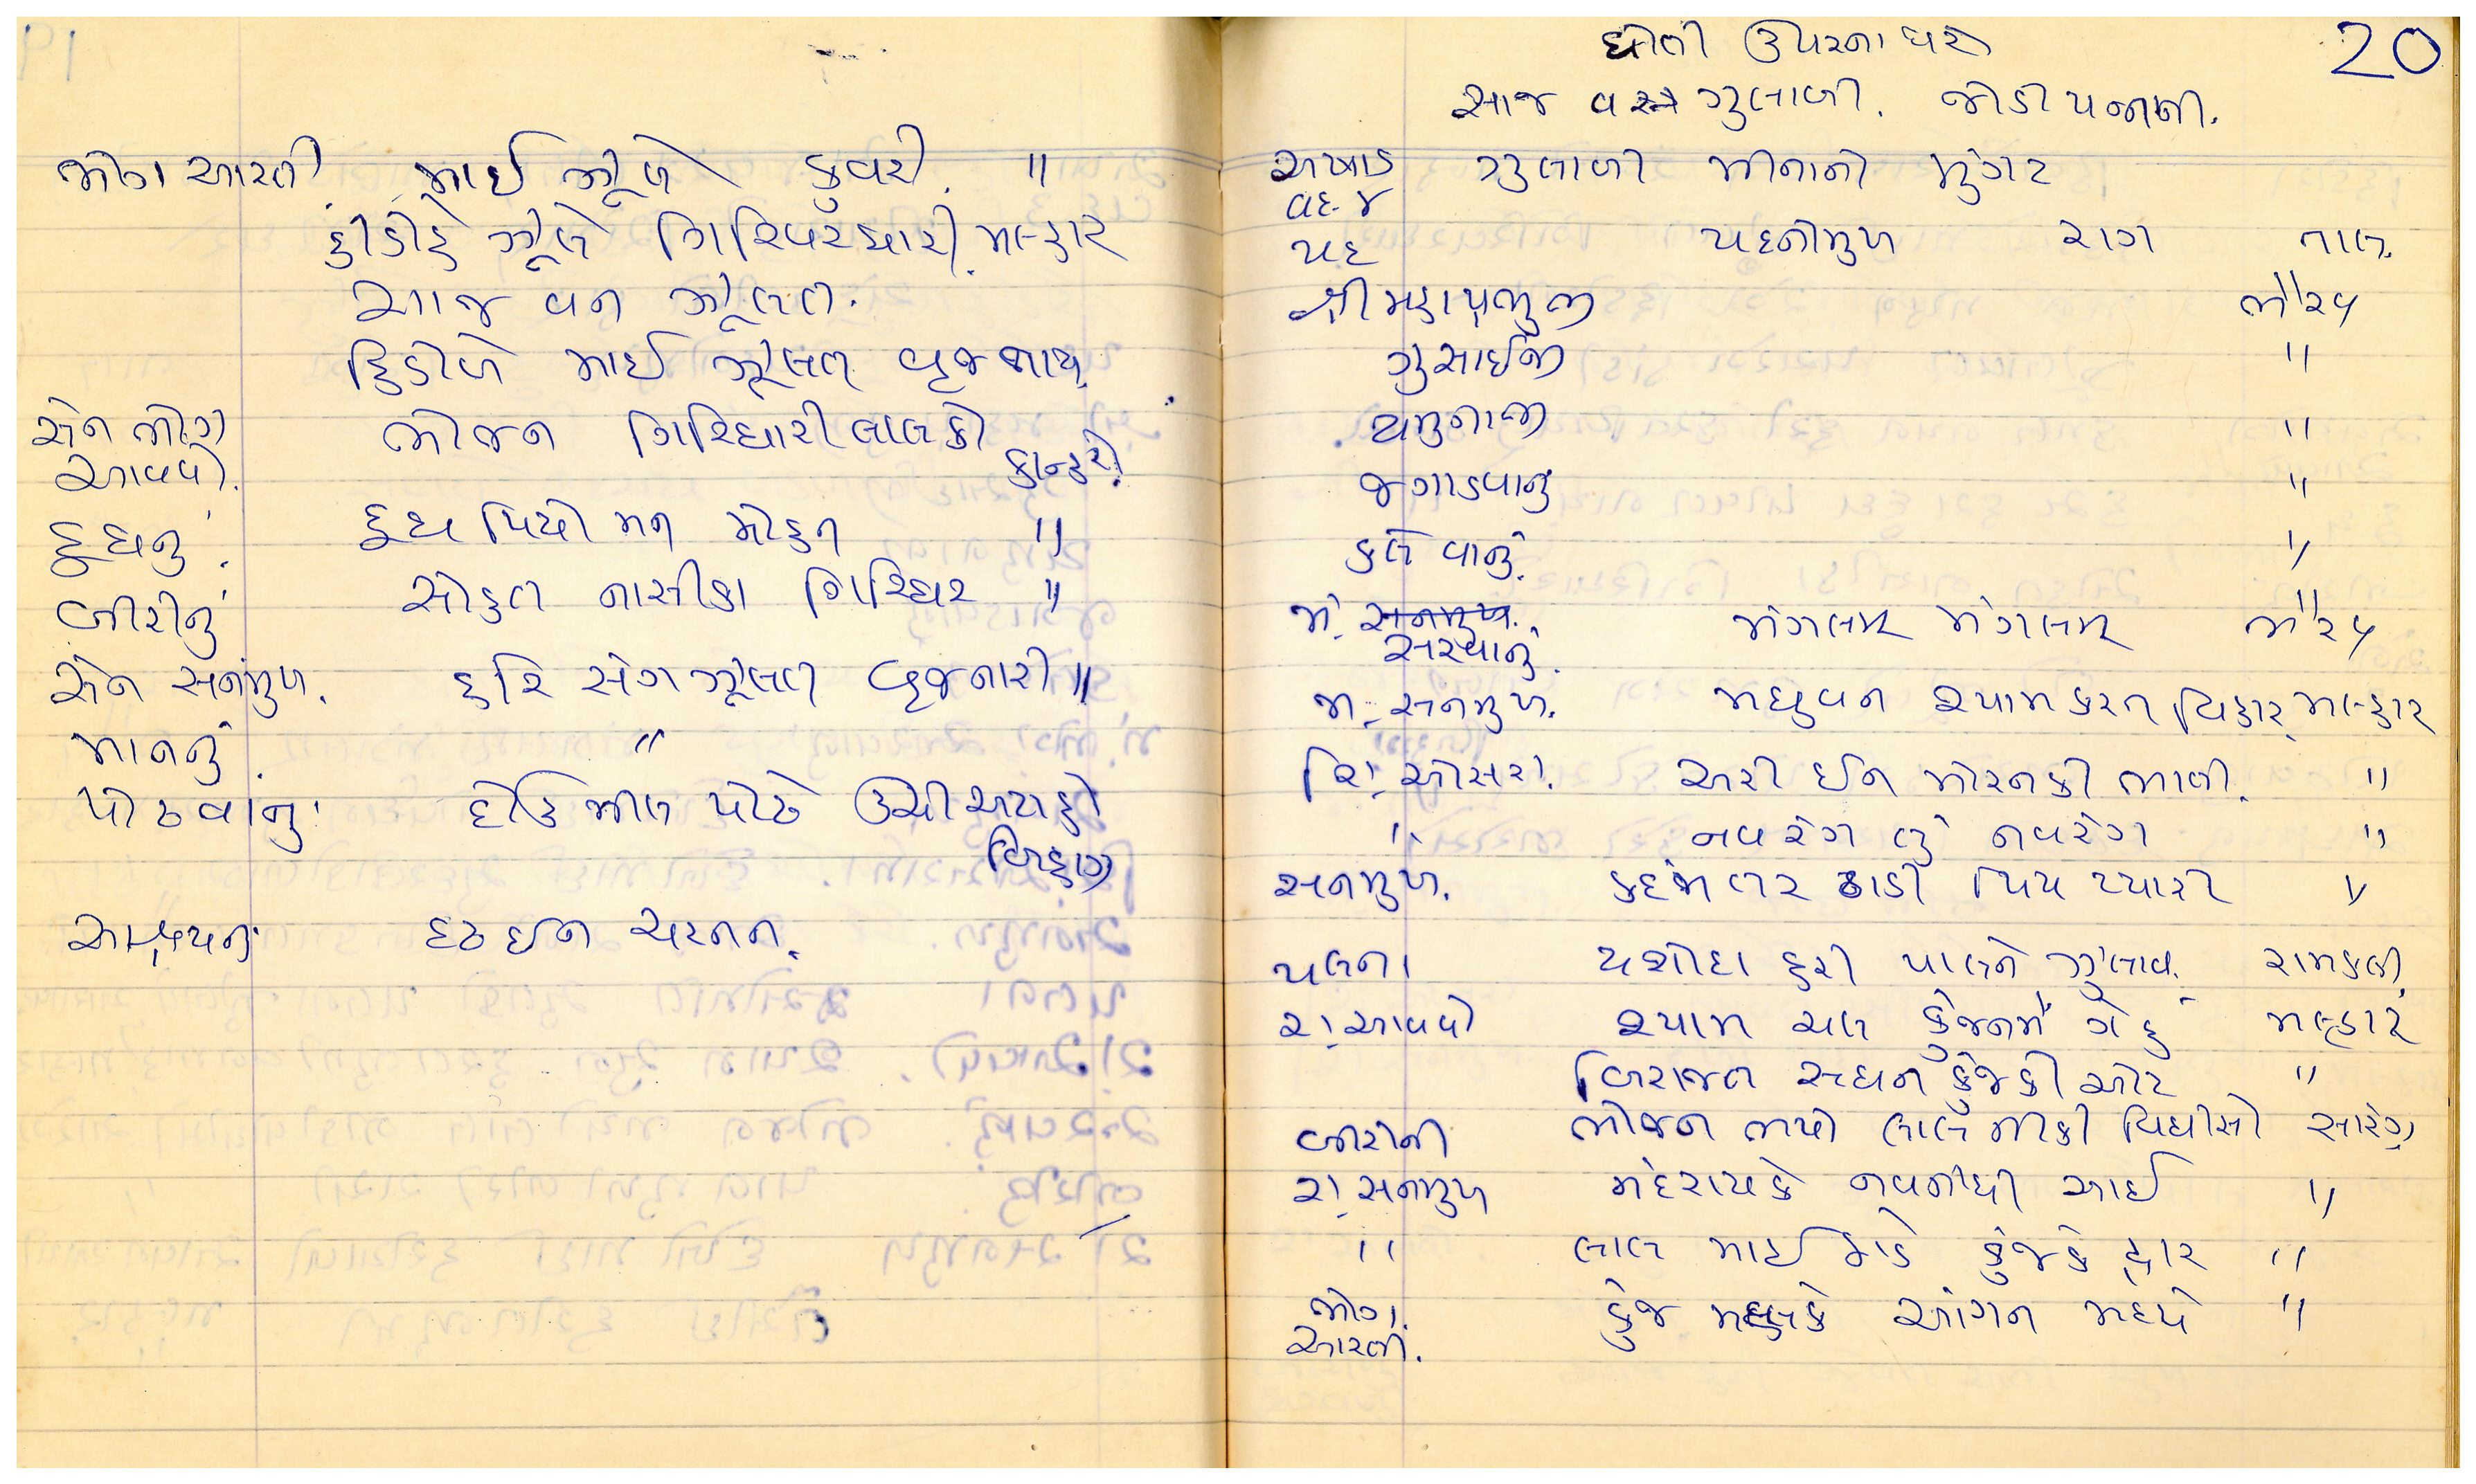 ભોગ આરતી માઈ ઝૂલે કુવરી. "
હીંડોરે ઝૂલે ગિરિવરધારી મલ્હાર
આજ વન ઝૂલત.
હિંડોળે માઈ ઝૂલત વ્રજનાથ
સેન ભોગ ભોજન ગિરિધારીલાલકો
આવવો. કાન્હરો
દૂધનું દૂધ પિયો મન મોહન "
બીરીનું સોહત નાસીકા ગિરિધર "
સેન સનમુખ. હરિ સંગ ઝૂલત વ્રજનારી "
માનનું. "
પોઢવાનું દોઉ મીલ પોઢે ઉંચી અટાહો
બિહાગ
આશ્રયનું દૃઢ ઈન ચરનન.
20
ધોતી ઉપરના ધરે
આજ વસ્ત્ર ગુલાબી. જોડી પન્નાની.
અષાડ ગુલાબી મીનાનો મુગટ
વદ ૪
પદ પદનીમુખ રાગ તાલ.
શ્રી મહાપ્રભુજી ભૈરવ
ગુસાઈજી "
યમુનાજી "
જગાડવાનું "
કલેવાનું. "
મં. સનમુખ.
સરવાનું. મંગલમ્ મંગલમ્ ભૈરવ
મં. સનમુખ. મધુવન શ્યામ કરત વિહાર મલ્હાર
શિં. ઓસરા. અરી ઈન મોરનકી ભાતી. "
" નવરંગ તું નવરંગ "
સનમુખ. કદંબ તર ઠાડી પિય પ્યારી "
પલના યશોદા હરી પાલને ઝુલાવે રામકલી
રા. આવવો શ્યામ ચલ કુંજનમેં ગેહ મલ્હાર
બિરાજત સઘન કુંજકી ઓટ "
બીરીની ભોજન ભયો લાલ નીકી વિધીસો સારંગ
રા. સનમુખ નંદરાયકે નવનીધી આઈ "
" લાલ માઈ ઠાડે કુંજકે દ્વાર "
ભોગ. કુંજ મહલકે આંગન મધ્યે "
આરતી.